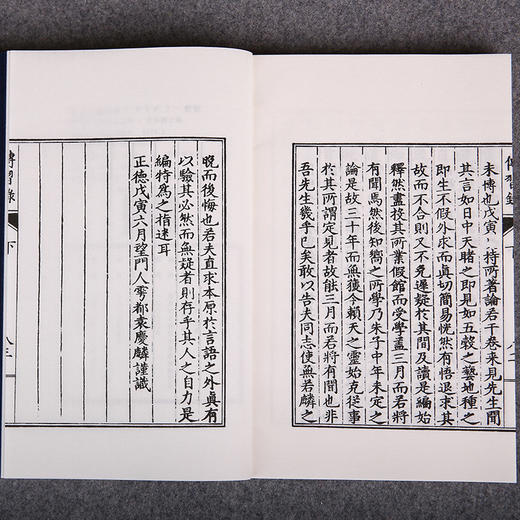 未博也戊寅夏持所著論若干卷來見先生聞
其言如日中天睹之即見如五穀之藝地種之
即生不假外求而眞切簡易恍然有悟退求其
故而不合則又不免遲疑於其間及讀是編始
釋然盡投其所業假館而受學蓋三月而若將
有聞焉然後知嚮之所學乃朱子中年未定之
論是故三十年而無獲今賴天之靈始克從事
於其所謂定見者故能三月而若將有聞也非
吾先生幾乎已矣敢以告夫同志使無若麟之
晚而後悔也若夫直求本原於言語之外眞有
以驗其必然而無疑者則存乎其人之自力是
編特為之指迷耳
正德戊寅六月望門人雩都袁慶麟謹識
傳習錄 下 八三